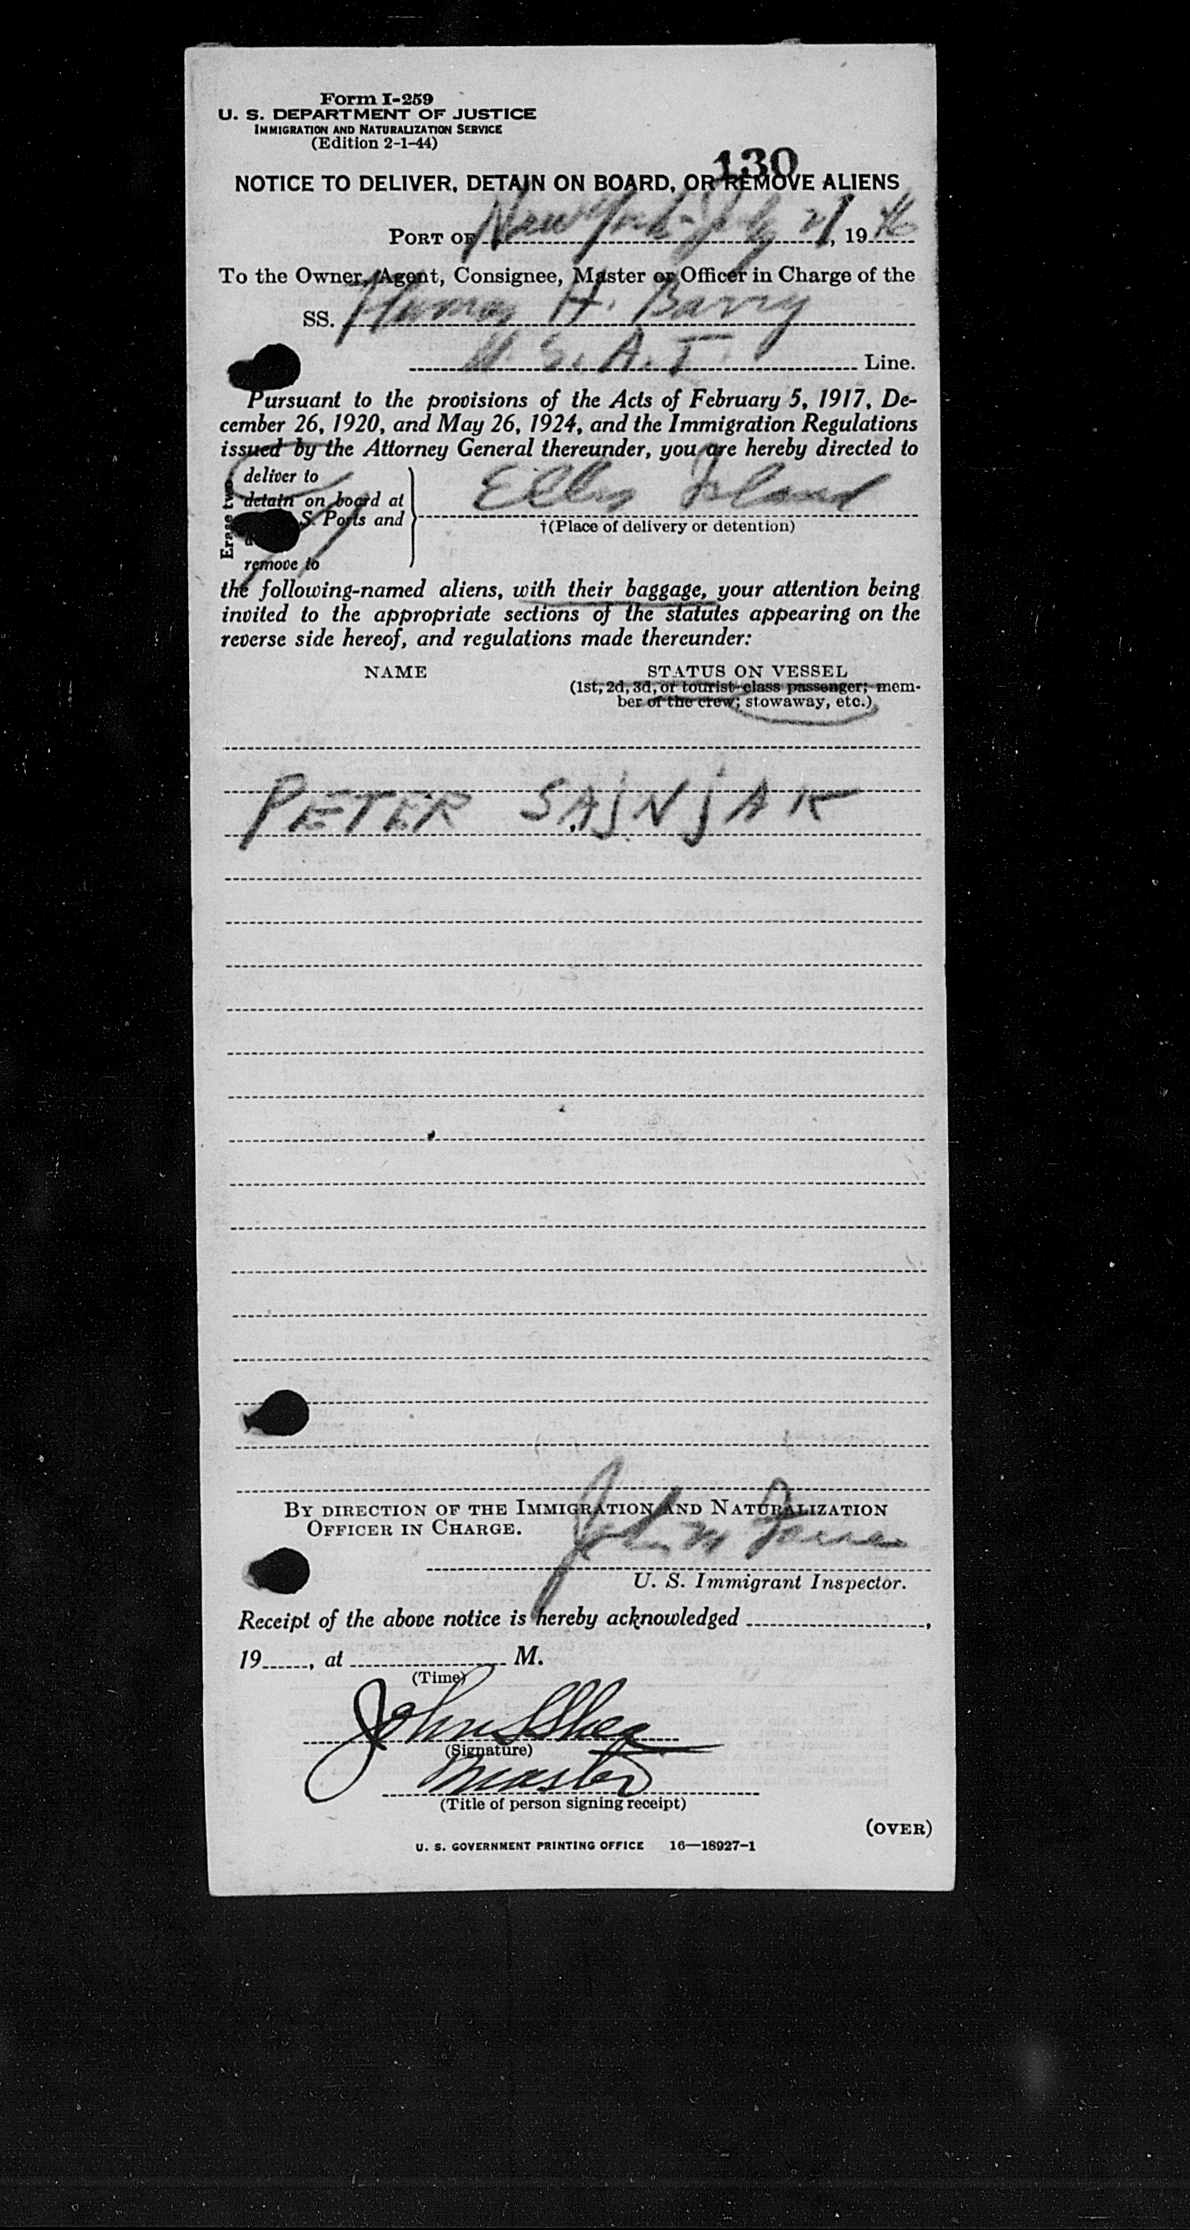 Form I-259
U. S. DEPARTMENT OF JUSTICE
IMMIGRATION AND NATURALIZATION SERVICE
(Edition 2-1-44)
130
NOTICE TO DELIVER, DETAIN ON BOARD, OR REMOVE ALIENS
PORT OF New York - July 21, 1946
To the Owner, Agent, Consignee, Master or Officer in Charge of the
SS. H. Barry
U. S. A. T. Line.
Pursuant to the provisions of the Acts of February 5, 1917, De-
cember 26, 1920, and May 26, 1924, and the Immigration Regulations
issued by the Attorney General thereunder, you are hereby directed to
Erase two
deliver to
detain on board at
S. Ports and
remove to
Ellis Island
†(Place of delivery or detention)
the following-named aliens, with their baggage, your attention being
invited to the appropriate sections of the statutes appearing on the
reverse side hereof, and regulations made thereunder:
NAME STATUS ON VESSEL
(1st, 2d, 3d, or tourist-class passenger; mem-
ber of the crew; stowaway, etc.)
PETER SAjNjAK
BY DIRECTION OF THE IMMIGRATION AND NATURALIZATION
OFFICER IN CHARGE.
John
U. S. Immigrant Inspector.
Receipt of the above notice is hereby acknowledged ,
19 , at M.
(Time)
John S Shea
(Signature)
Master
(Title of person signing receipt)
(OVER)
U. S. GOVERNMENT PRINTING OFFICE 16—18927-1